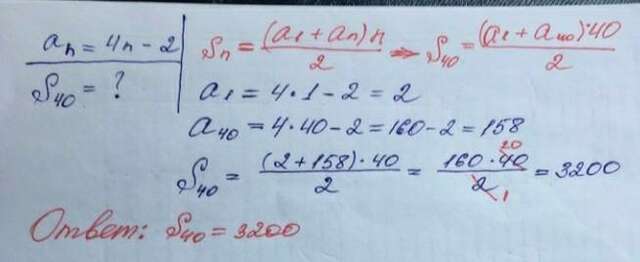 aₙ = 4n - 2
S₄₀ = ?
Sₙ = (a₁ + aₙ)n / 2 ⇒ S₄₀ = (a₁ + a₄₀)·40 / 2
a₁ = 4·1 - 2 = 2
a₄₀ = 4·40 - 2 = 160 - 2 = 158
S₄₀ = (2 + 158)·40 / 2 = 160·40 / 2 = 3200
20
1
Ответ: S₄₀ = 3200